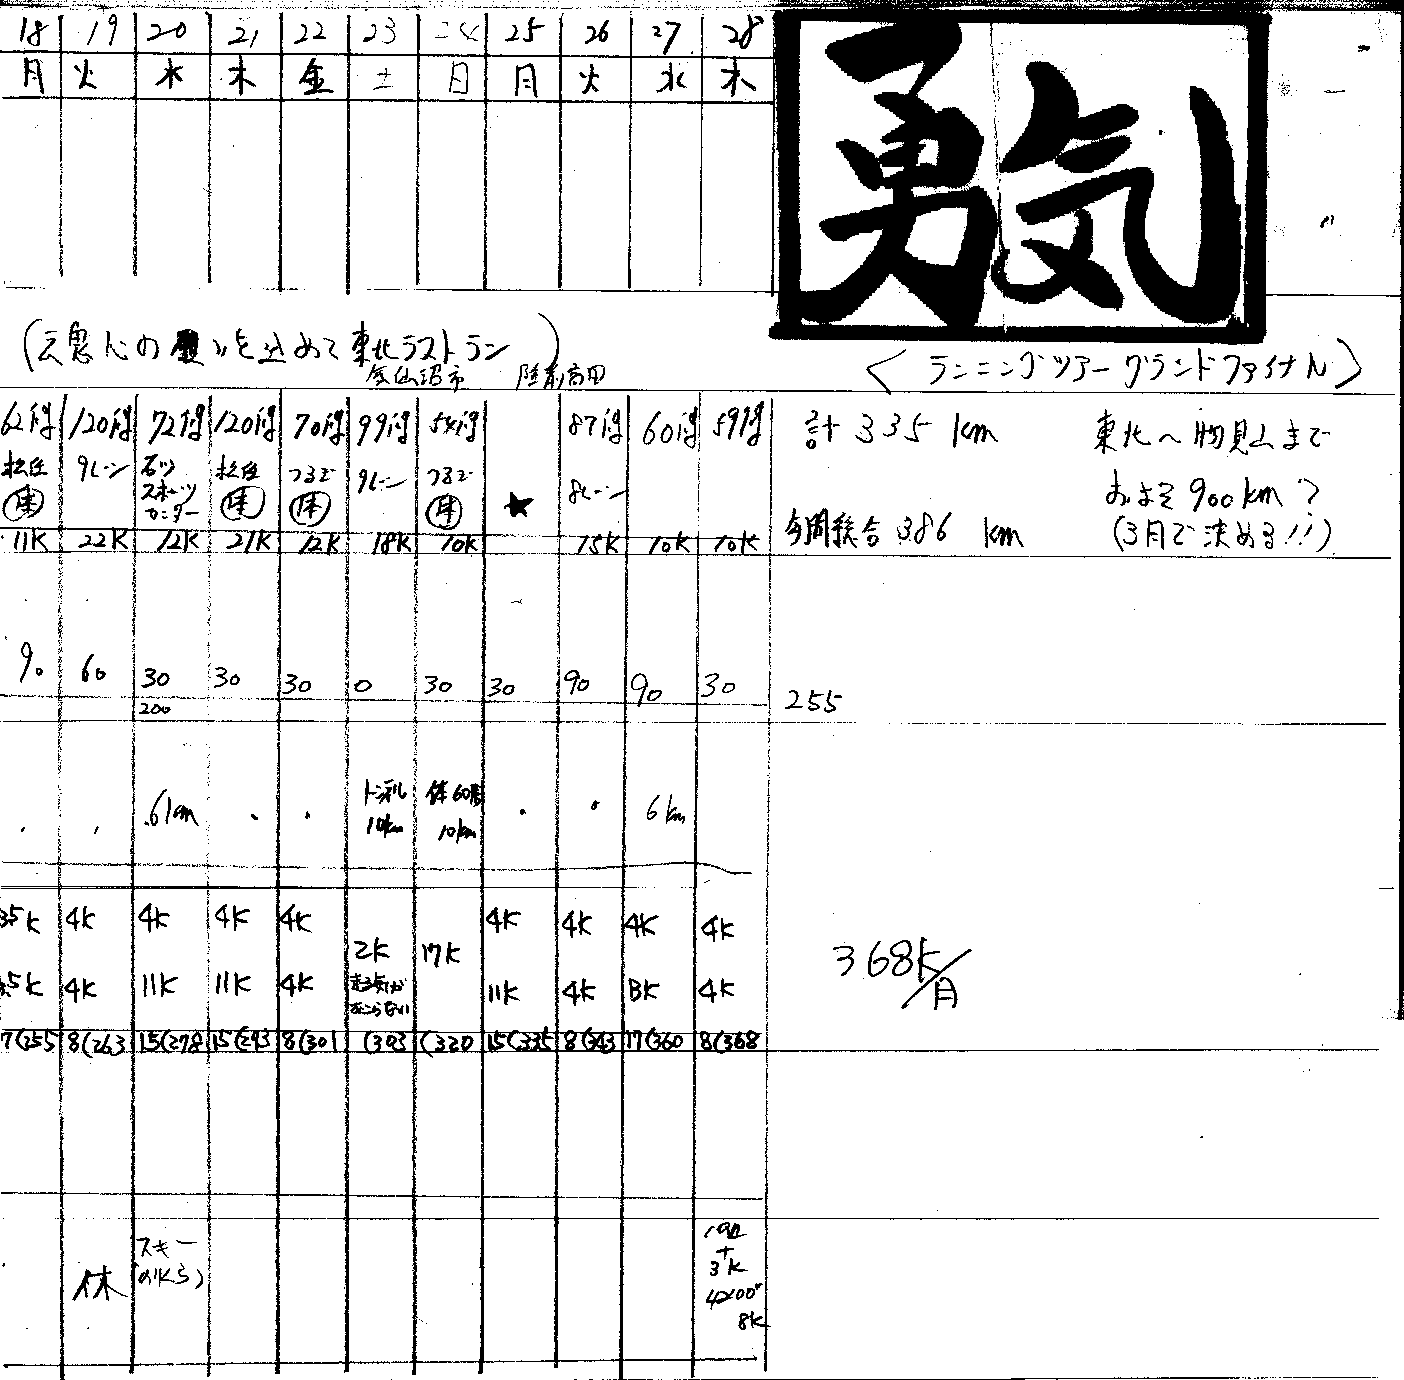 18 19 20 21 22 23 24 25 26 27 28
月 火 水 木 金 土 日 月 火 水 木
勇気
を込めて東北ラストラン)
気仙沼市 陸前高田
<ランニングツアーグランドファイナル>
62周 120周 72周 120周 70周 99周 54周 87周 60周 59周
計 335 km
東北〜物見山まで
松任 9レーン 松任 つるぎ 9レーン つるぎ ★ 8レーン
スポーツ
センター
およそ900km?
11K 22K 12K 21K 12K 18K 10K 15K 10K 10K
今週総合 386 km
(3月で決める!!)
90 60 30 30 30 0 30 30 90 90 30
200
255
トンネル 体60周
6km 10km 10km 6km
4K 4K 4K 4K 4K 4K 4K 4K
2K 17K
368K/月
4K 11K 11K 4K 11K 4K 4K
7(255 8(263 15(278 15(293 8(301 (303 (320 15(335 8(343 17(360 8(368
休
スキー
3K
8K